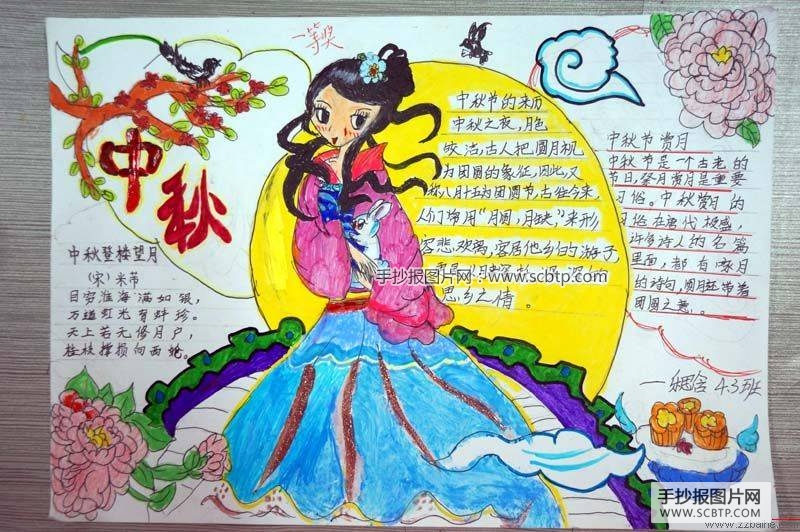 一等奖
中秋
中秋登楼望月
（宋）米芾
目穷淮海满如银，
万道虹光育蚌珍。
天上若无修月户，
桂枝撑损向西轮。
中秋节的来历
中秋之夜，月色
皎洁，古人把圆月视
为团圆的象征，因此，又
称八月十五为团圆节。古往今来，
人们常用“月圆、月缺”来形
容悲欢离合，客居他乡的游子，
思乡之情。
中秋节赏月
中秋节是一个古老的
节日，祭月赏月是重要
习俗。中秋赏月的
习俗在唐代极盛，
许多诗人的名篇
里面，都有咏月
的诗句，
团圆之意。
4.3班
手抄报图片网 www.scbtp.com
手抄报图片网
SCBTP.COM